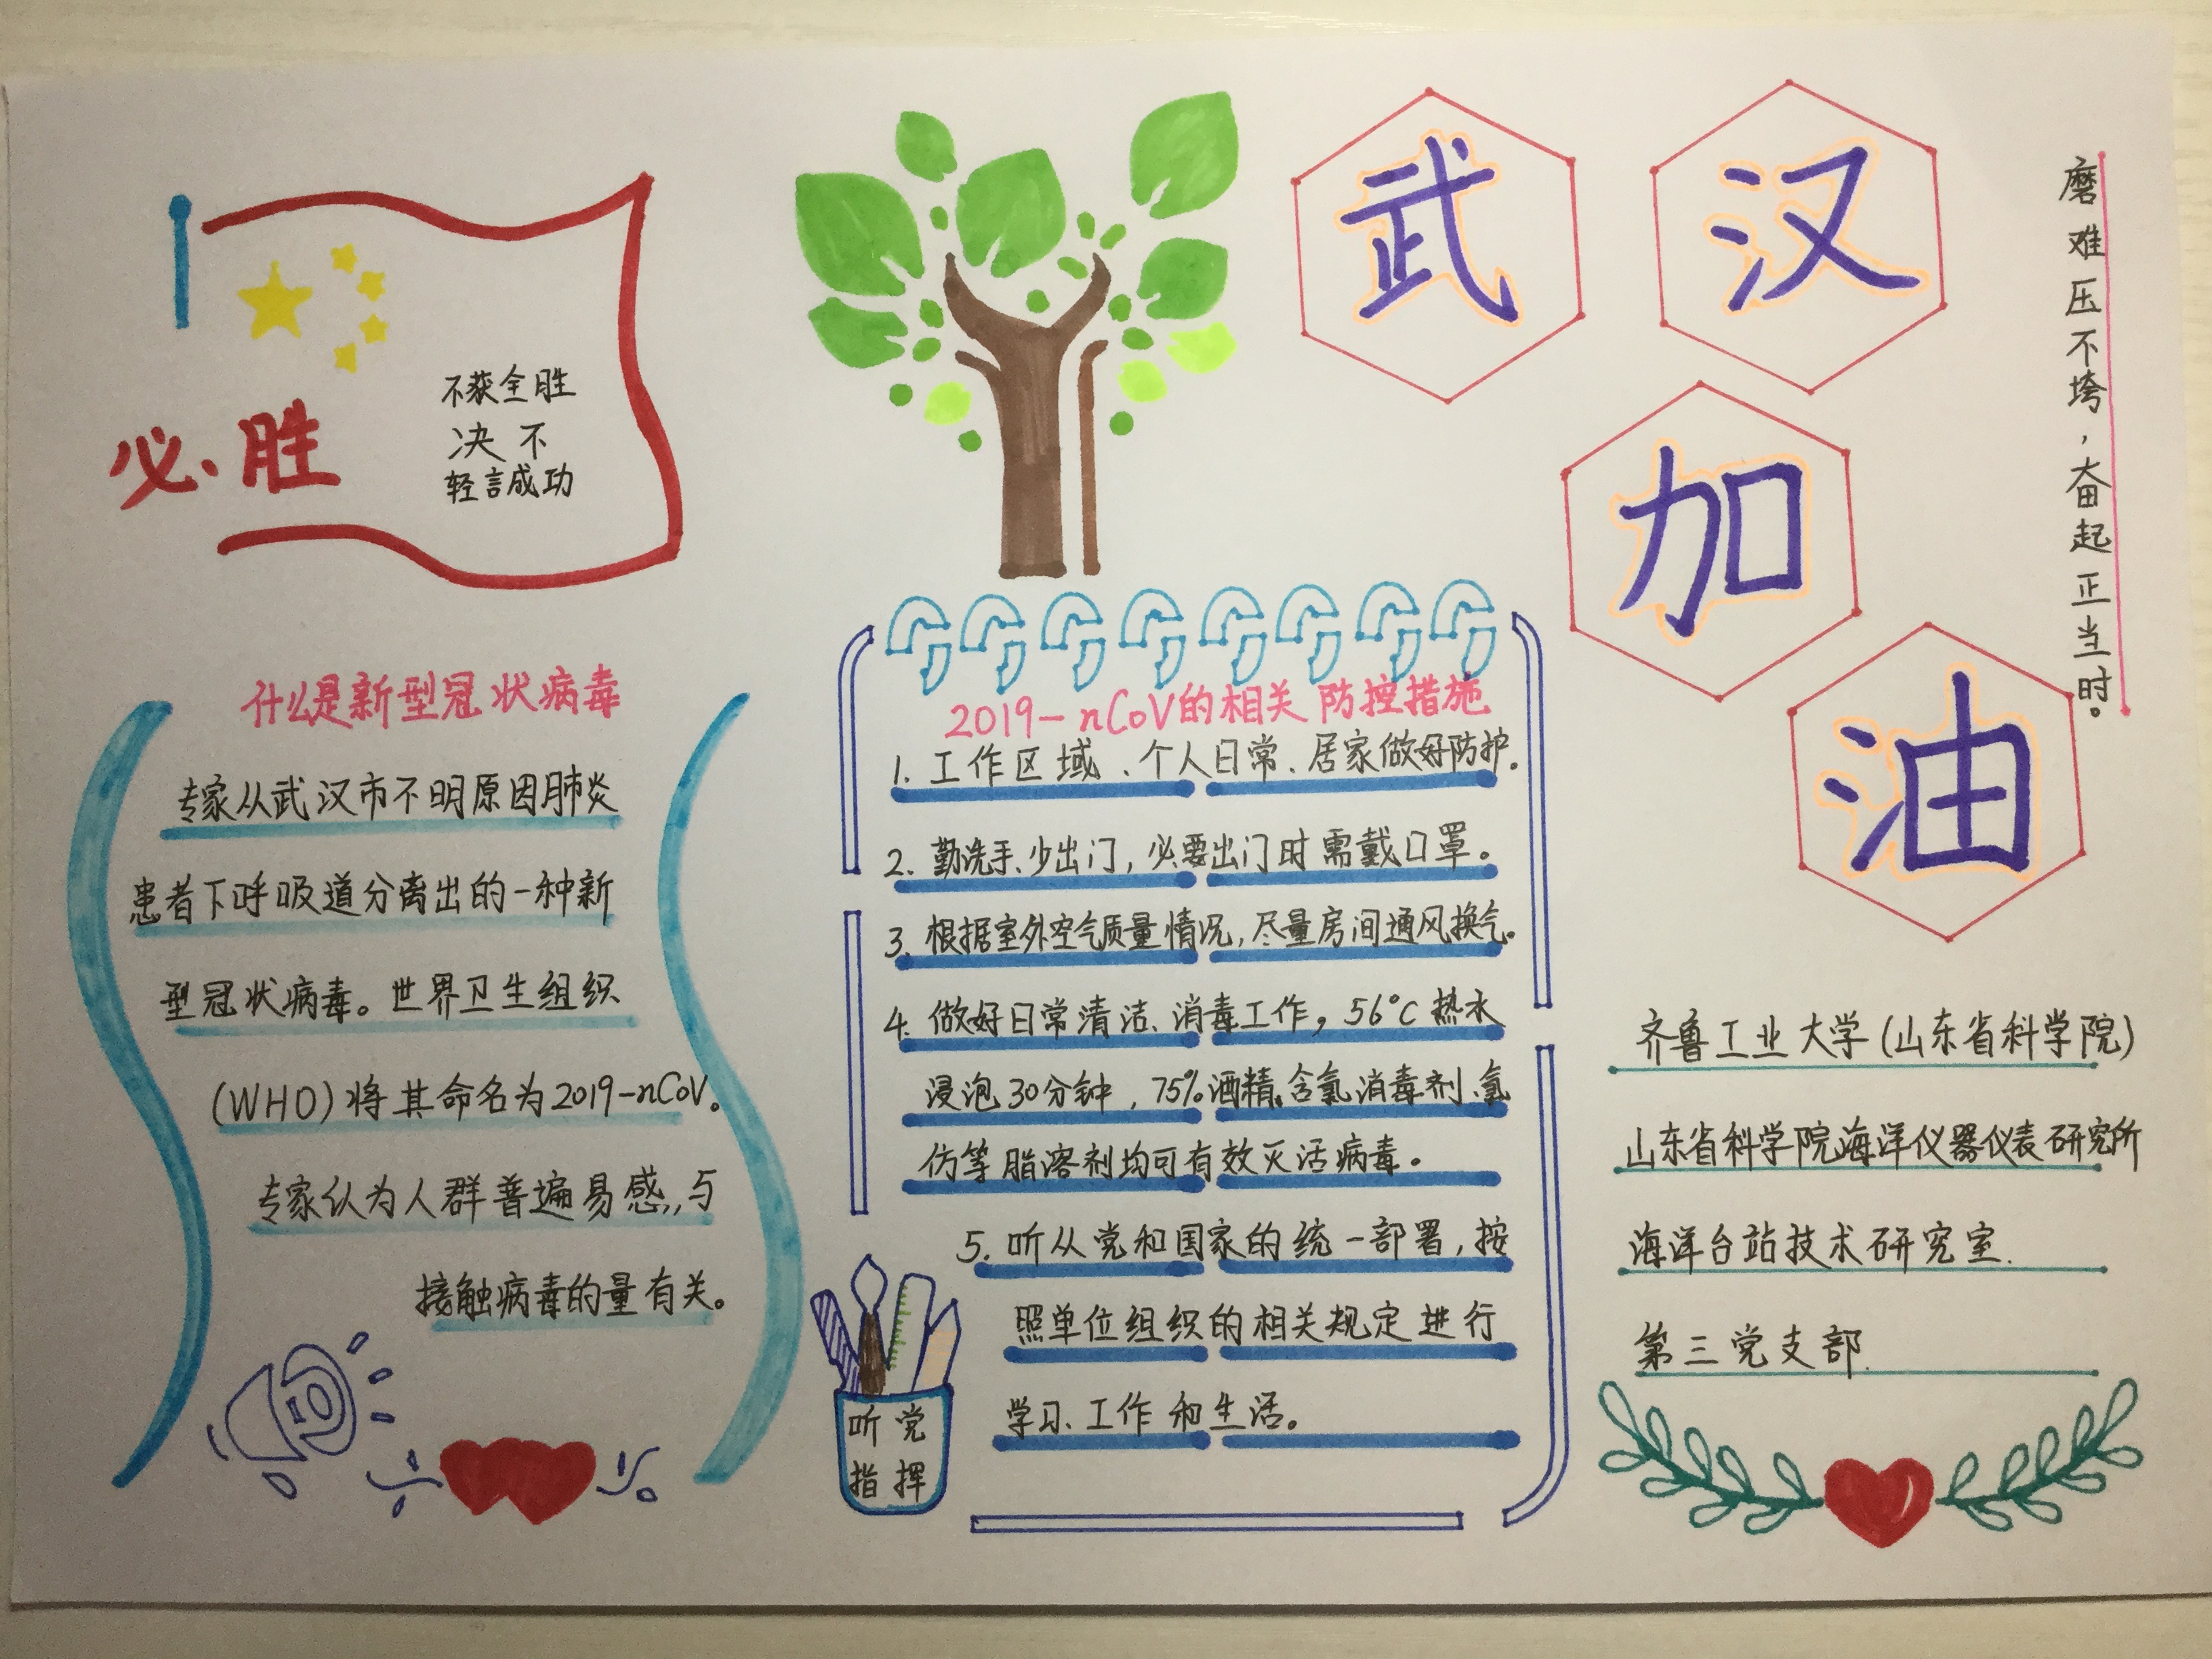 必胜
不获全胜
决不
轻言成功
武汉
加
油
磨难压不垮,奋起正当时。
什么是新型冠状病毒
专家从武汉市不明原因肺炎
患者下呼吸道分离出的一种新
型冠状病毒。世界卫生组织
(WHO)将其命名为2019-nCoV。
专家认为人群普遍易感,与
接触病毒的量有关。
2019-nCoV的相关防控措施
1. 工作区域、个人日常、居家做好防护.
2. 勤洗手、少出门,必要出门时需戴口罩。
3. 根据室外空气质量情况,尽量房间通风换气。
4. 做好日常清洁、消毒工作,56℃热水
浸泡30分钟,75%酒精、含氯消毒剂、氯
仿等脂溶剂均可有效灭活病毒。
5. 听从党和国家的统一部署,按
照单位组织的相关规定进行
学习、工作和生活。
听党
指挥
齐鲁工业大学(山东省科学院)
山东省科学院海洋仪器仪表研究所
海洋台站技术研究室.
第三党支部.